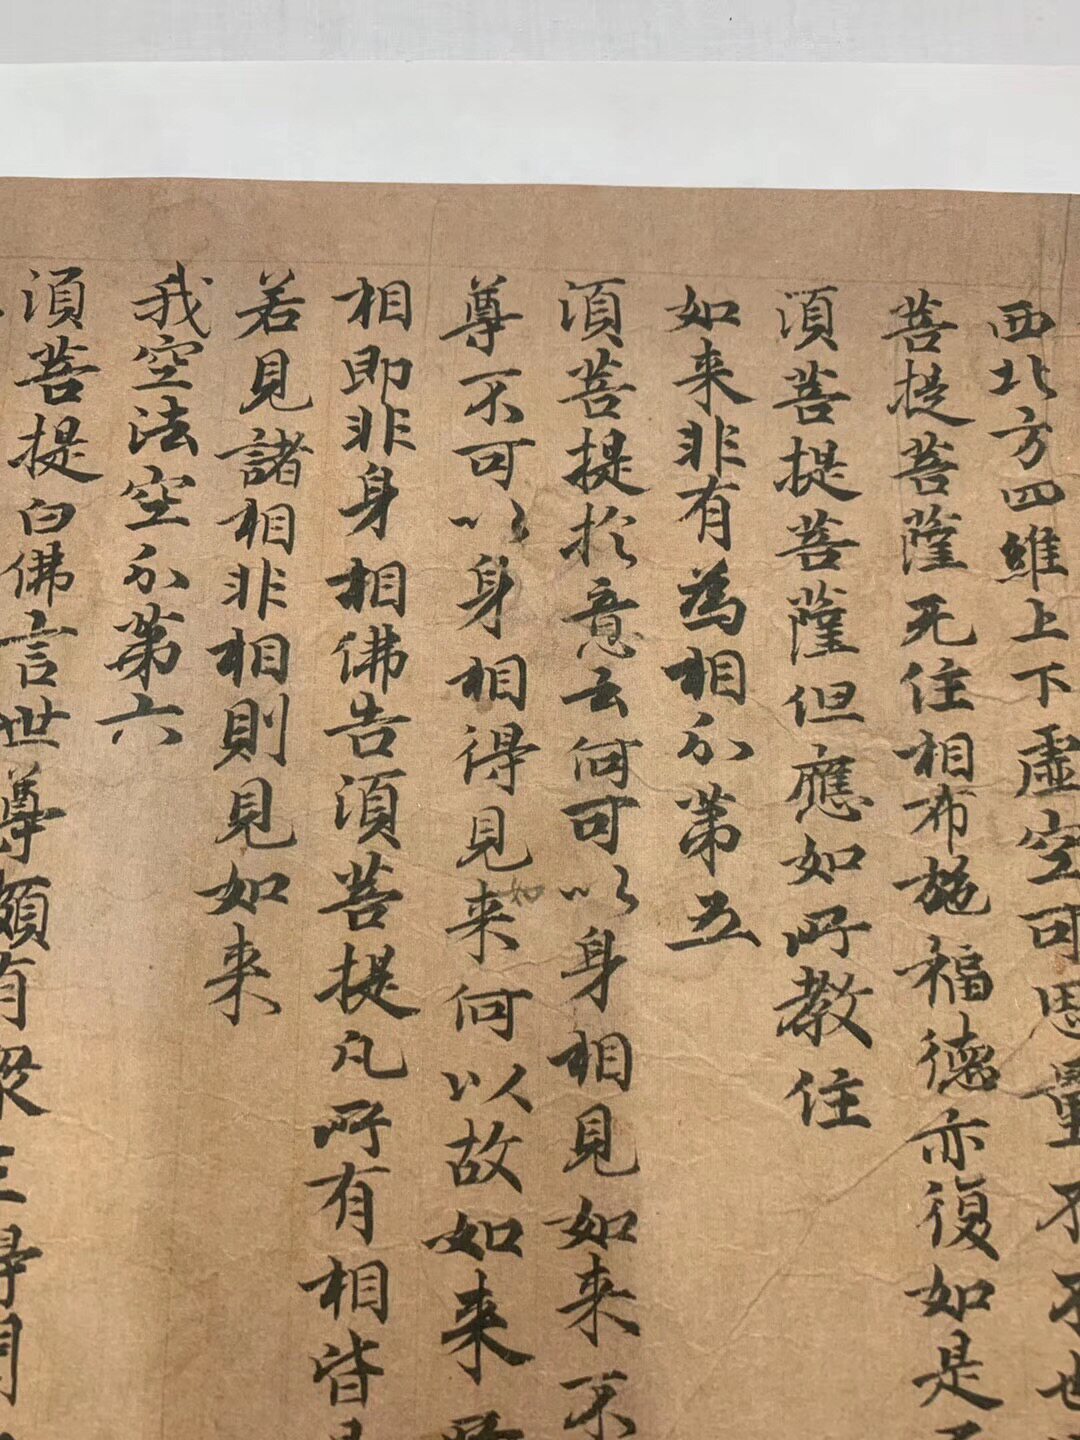 西北方四維上下虛空可思量不不也
菩提菩薩无住相布施福德亦復如是
須菩提菩薩但應如所教住
如来非有為相分第五
須菩提於意云何可以身相見如来不
尊不可以身相得見如来何以故如来所
相即非身相佛告須菩提凡所有相皆是
若見諸相非相則見如来
我空法空分第六
須菩提白佛言世尊頗有衆生得聞